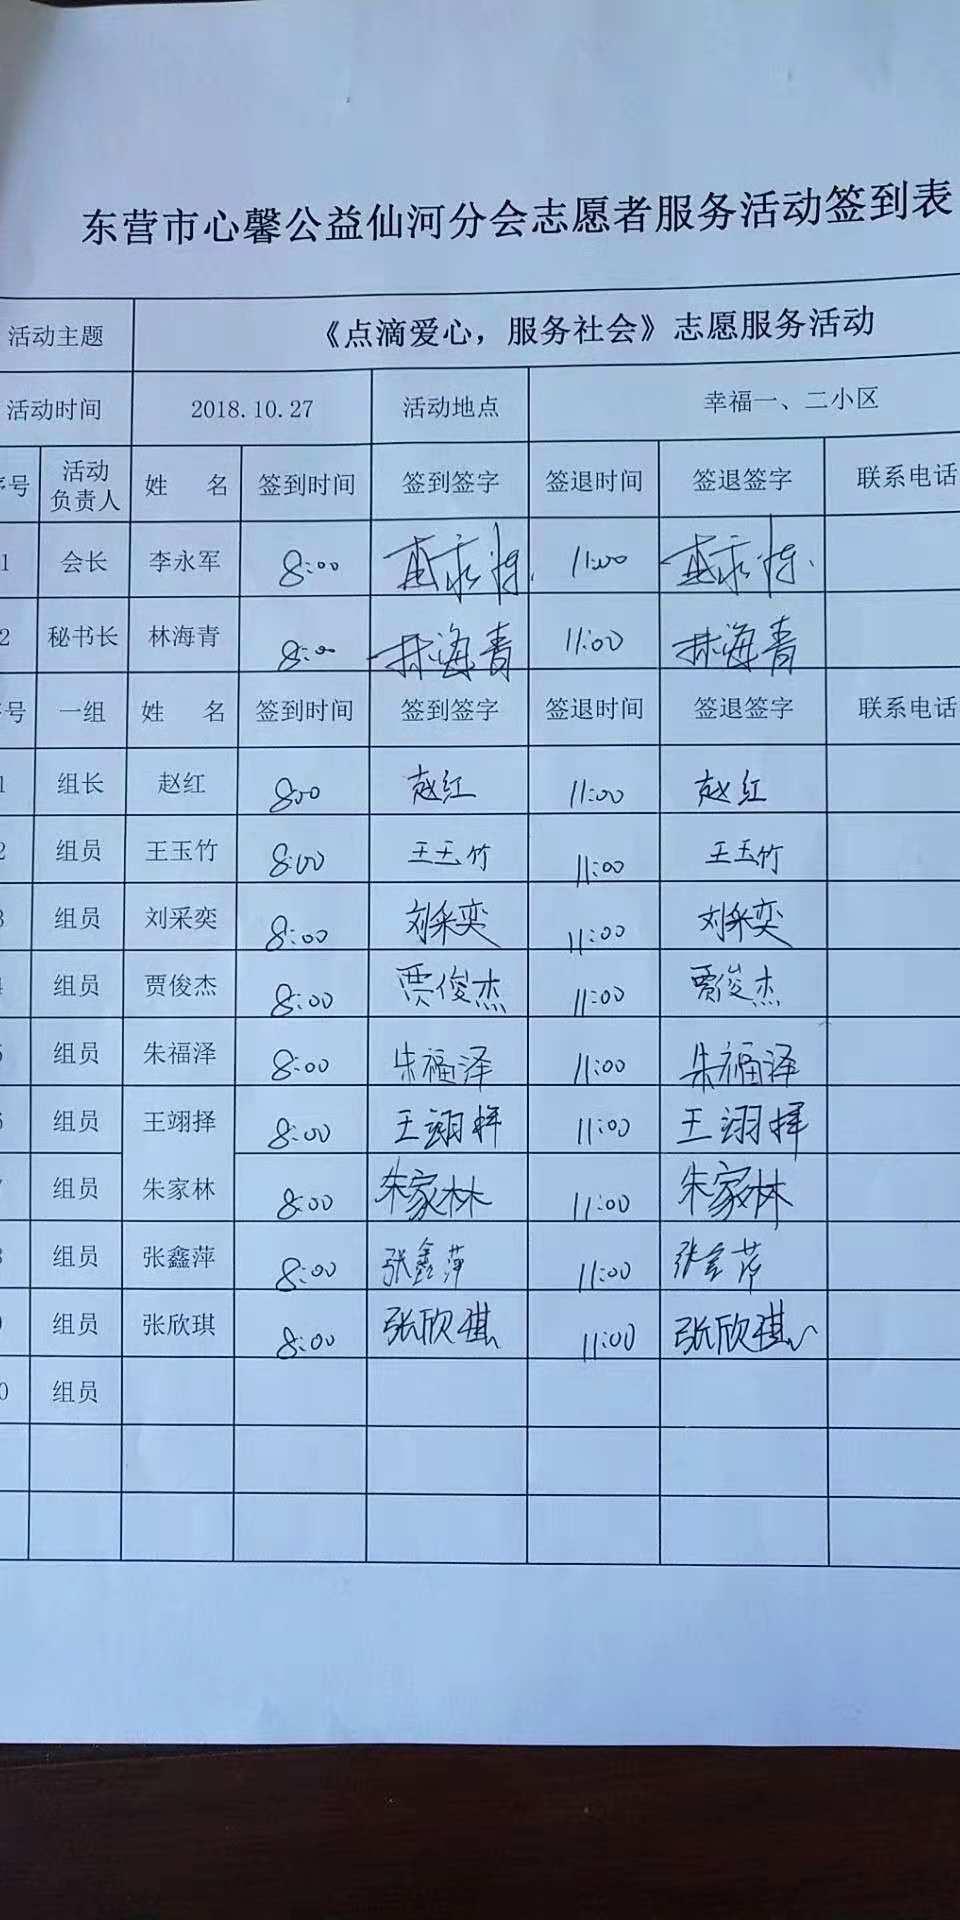 东营市心馨公益仙河分会志愿者服务活动签到表
活动主题 《点滴爱心，服务社会》志愿服务活动
活动时间 2018.10.27 活动地点 幸福一、二小区
序号 活动负责人 姓 名 签到时间 签到签字 签退时间 签退签字 联系电话
1 会长 李永军 8:00 11:00
2 秘书长 林海青 8:00 林海青 11:00 林海青
序号 一组 姓 名 签到时间 签到签字 签退时间 签退签字 联系电话
1 组长 赵红 8:00 赵红 11:00 赵红
2 组员 王玉竹 8:00 王玉竹 11:00 王玉竹
3 组员 刘采奕 8:00 刘采奕 11:00 刘采奕
4 组员 贾俊杰 8:00 贾俊杰 11:00 贾俊杰
5 组员 朱福泽 8:00 朱福泽 11:00 朱福泽
6 组员 王翊择 8:00 王翊择 11:00 王翊择
7 组员 朱家林 8:00 朱家林 11:00 朱家林
8 组员 张鑫萍 8:00 张鑫萍 11:00 张鑫萍
9 组员 张欣琪 8:00 张欣琪 11:00 张欣琪
0 组员